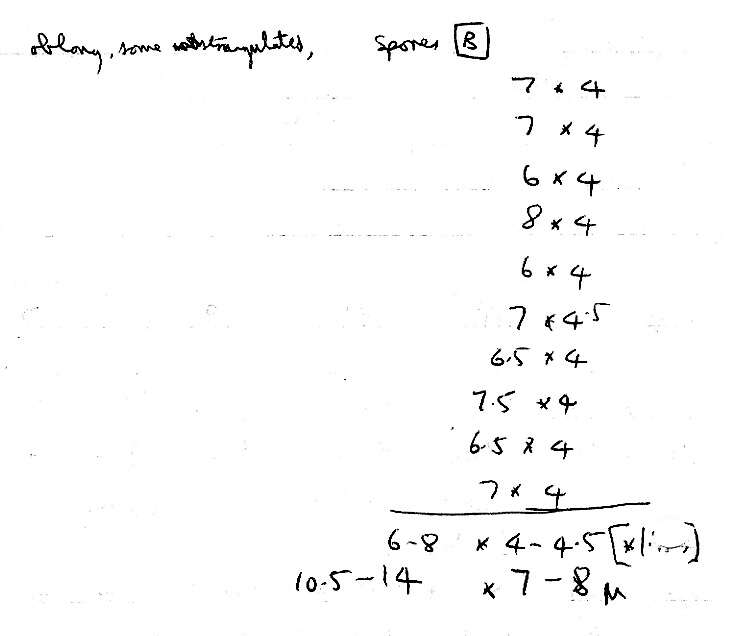 oblong, some substrangulated, Spores B
7 × 4
7 × 4
6 × 4
8 × 4
6 × 4
7 × 4.5
6.5 × 4
7.5 × 4
6.5 × 4
7 × 4
6-8 × 4-4.5 [×
10.5-14 × 7-8 μ